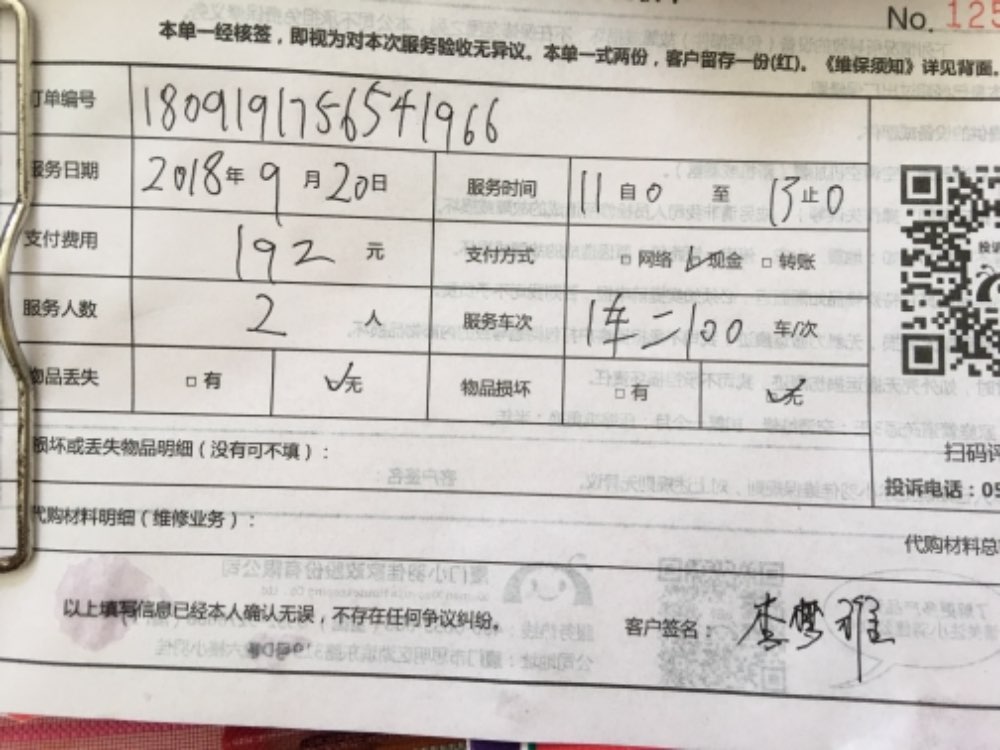 No. 125
本单一经核签，即视为对本次服务验收无异议。本单一式两份，客户留存一份(红)。《维保须知》详见背面。
订单编号 180919175654 1966
服务日期 2018年9月20日 服务时间 11自0 至 13止0
支付费用 192 元 支付方式 □网络 ☑现金 □转账
服务人数 2 人 服务车次 1车=100 车/次
物品丢失 □有 ☑无 物品损坏 □有 ☑无
损坏或丢失物品明细（没有可不填）：
扫码评
投诉电话：05
代购材料明细（维修业务）：
代购材料总
以上填写信息已经本人确认无误，不存在任何争议纠纷。 客户签名：